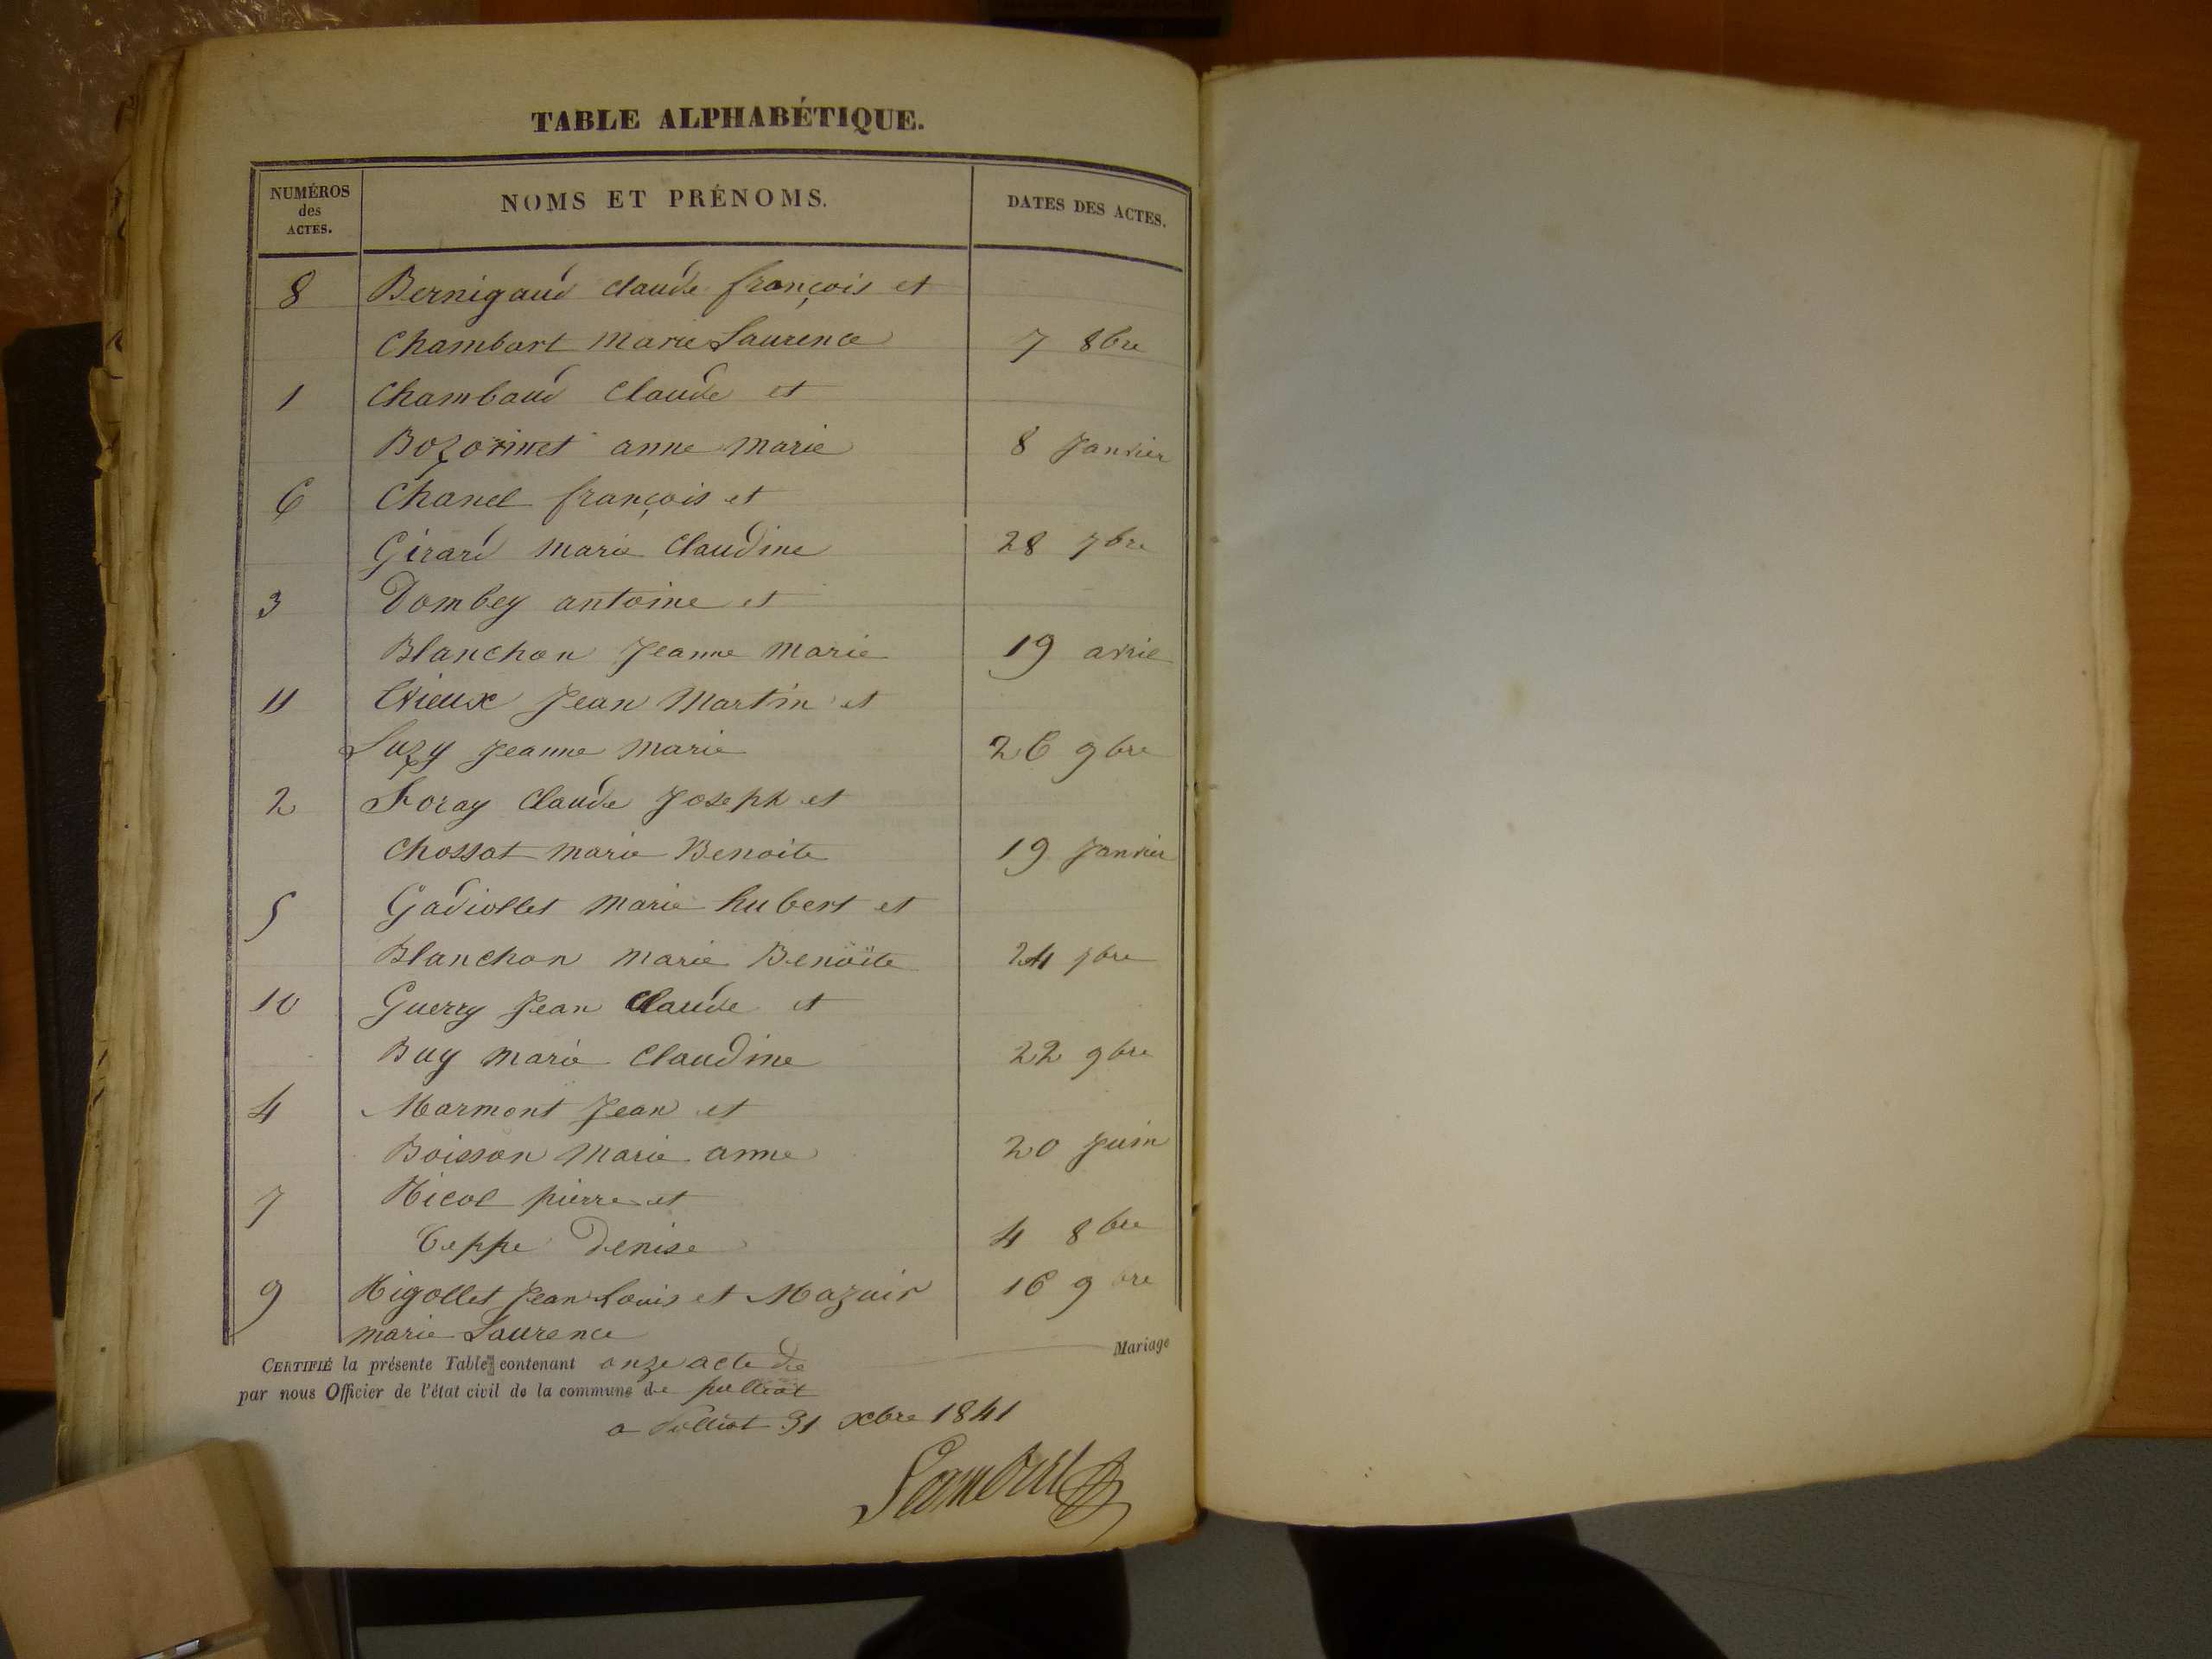 TABLE ALPHABÉTIQUE.
NUMÉROS des ACTES.
NOMS ET PRÉNOMS.
DATES DES ACTES.
8 Bernigaud Claude françois et
Chambart Marie Laurence 7 8bre
1 Chambaud Claude et
Bozonnet anne Marie 8 Janvier
6 Chanel françois et
Girard Marie Claudine 28 7bre
3 Dombey antoine et
Blanchon Jeanne Marie 19 avril
11 Evieux Jean Martin et
Luzy Jeanne Marie 26 9bre
2 Foray Claude Joseph et
Chossat Marie Benoite 19 Janvier
5 Gadiollet Marie hubert et
Blanchon Marie Benoïte 24 7bre
10 Guerry Jean Claude et
Buy Marie Claudine 22 9bre
4 Marmont Jean et
Boisson Marie anne 20 Juin
7 Nicol pierre et
Teppe Denise 4 8bre
9 Nigollet Jean Louis et Mazuir 16 9bre
marie Laurence
Mariage
CERTIFIÉ la présente Table contenant onze acte de
par nous Officier de l'état civil de la commune de polliat
a Polliat 31 xbre 1841